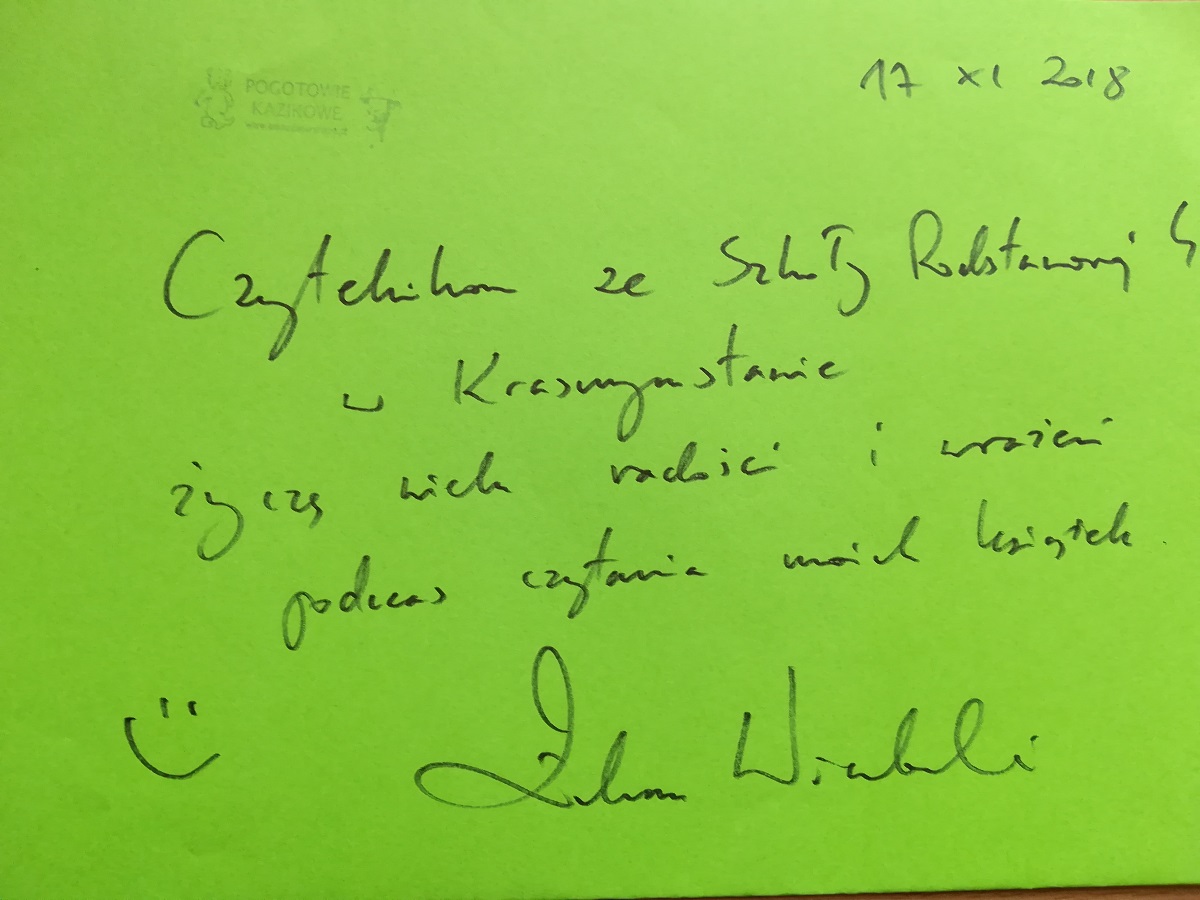 POGOTOWIE
KAZIKOWE
17 XI 2018
Czytelnikom ze Szkoły Podstawowej 4
w Krasnymstawie
życzę wielu radości i wrażeń
podczas czytania moich książek.